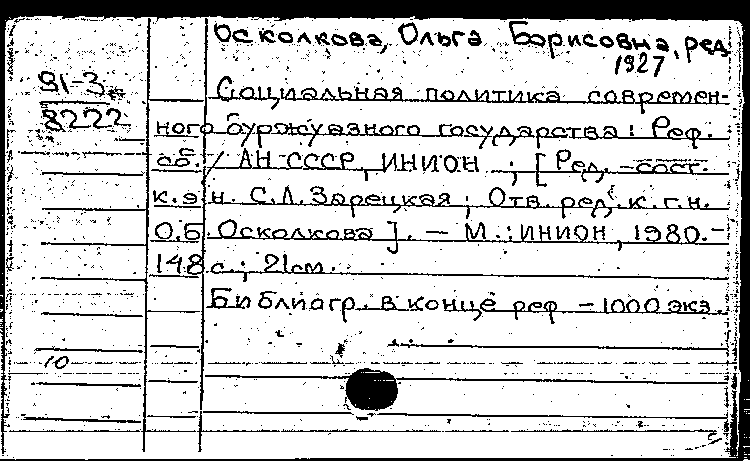 Осколкова, Ольга Борисовна, ред.
1927
91-3
8222
Социальная политика современ-
ного буржуазного государства: Реф.
сб. / АН СССР, ИНИОН ; [Ред.-сост.
к.э.н. С.Л. Зарецкая ; Отв. ред. к.г.н.
О.Б. Осколкова]. – М. : ИНИОН, 1980.–
148 с. ; 21 см.
Библиогр. в конце реф. – 1000 экз.
10